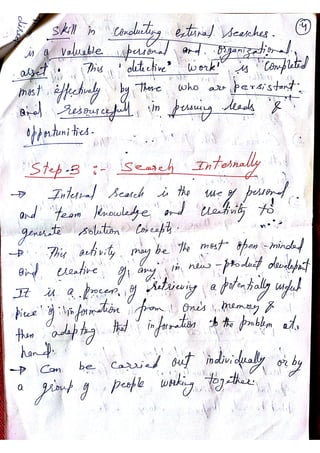 4
Skill in conducting external searches.
is a valuable personal and organizational
asset. This 'detective' work is completed
most effectively by those who are persistant
and resourcefull in persuing leads &
opportunities.
Step-3 :- Search Internally
→ Internal search is the use of personal
and team knowledge and creativity to
generate solution concepts
→ This activity may be the most open-minded
and creative of any in new-product development
It is a process of retrieving a potentially useful
piece of information from one's memory &
then adapting that information to the problem at
hand.
→ Can be carried out individually or by
a group of people working together.